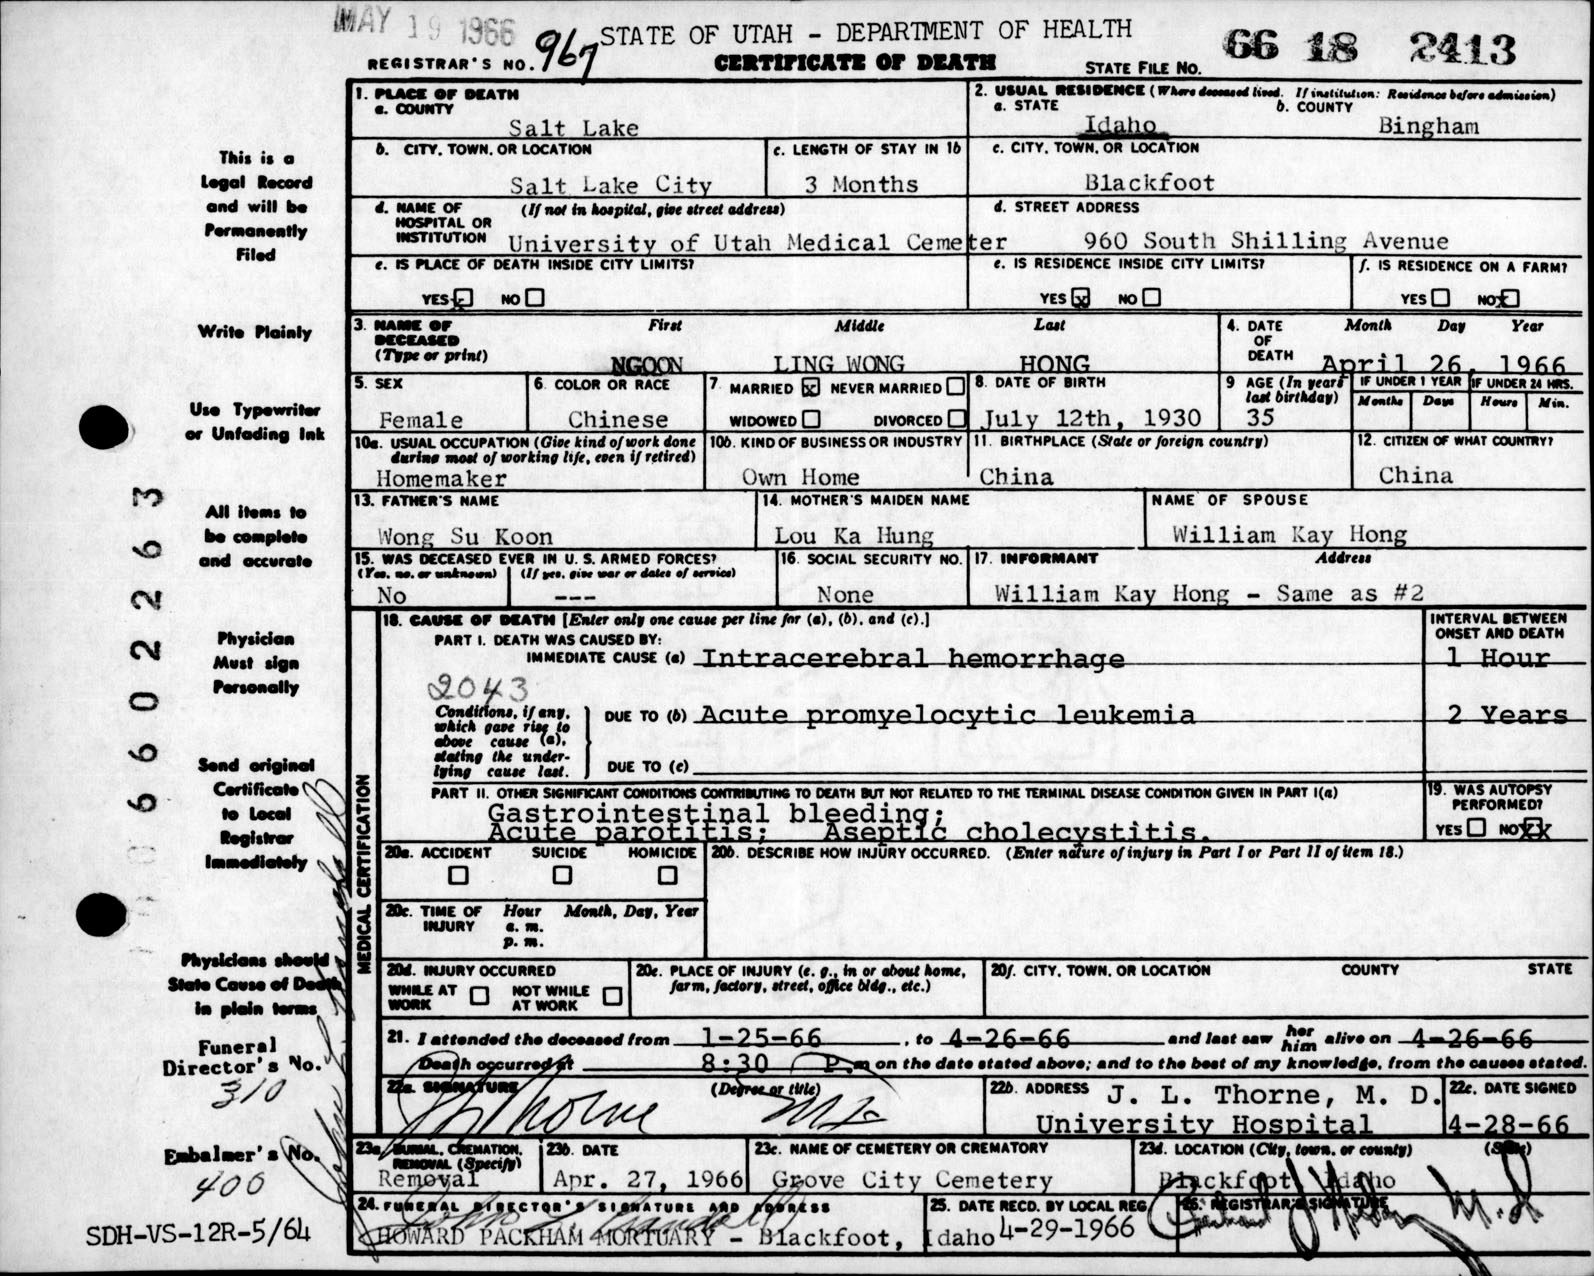 MAY 19 1966
REGISTRAR'S NO. 967
STATE OF UTAH - DEPARTMENT OF HEALTH
CERTIFICATE OF DEATH
STATE FILE NO. 66 18 2413
This is a
Legal Record
and will be
Permanently
Filed
Write Plainly
Use Typewriter
or Unfading Ink
All items to
be complete
and accurate
Physician
Must sign
Personally
Send original
Certificate
to Local
Registrar
Immediately
Physicians should
State Cause of Death
in plain terms
Funeral
Director's No.
310
Embalmer's No.
400
SDH-VS-12R-5/64
660 2263
1. PLACE OF DEATH
a. COUNTY
Salt Lake
2. USUAL RESIDENCE (Where deceased lived. If institution: Residence before admission)
a. STATE b. COUNTY
Idaho Bingham
b. CITY, TOWN, OR LOCATION
Salt Lake City
c. LENGTH OF STAY IN 1b
3 Months
c. CITY, TOWN, OR LOCATION
Blackfoot
d. NAME OF HOSPITAL OR INSTITUTION (If not in hospital, give street address)
University of Utah Medical Cemeter
d. STREET ADDRESS
960 South Shilling Avenue
e. IS PLACE OF DEATH INSIDE CITY LIMITS?
YES x NO
e. IS RESIDENCE INSIDE CITY LIMITS?
YES x NO
f. IS RESIDENCE ON A FARM?
YES NO x
3. NAME OF DECEASED (Type or print) First Middle Last
NGOON LING WONG HONG
4. DATE OF DEATH Month Day Year
April 26, 1966
5. SEX
Female
6. COLOR OR RACE
Chinese
7. MARRIED x NEVER MARRIED
WIDOWED DIVORCED
8. DATE OF BIRTH
July 12th, 1930
9 AGE (In years last birthday)
35
IF UNDER 1 YEAR IF UNDER 24 HRS.
Months Days Hours Min.
10a. USUAL OCCUPATION (Give kind of work done during most of working life, even if retired)
Homemaker
10b. KIND OF BUSINESS OR INDUSTRY
Own Home
11. BIRTHPLACE (State or foreign country)
China
12. CITIZEN OF WHAT COUNTRY?
China
13. FATHER'S NAME
Wong Su Koon
14. MOTHER'S MAIDEN NAME
Lou Ka Hung
NAME OF SPOUSE
William Kay Hong
15. WAS DECEASED EVER IN U. S. ARMED FORCES?
(Yes, no, or unknown) (If yes, give war or dates of service)
No ---
16. SOCIAL SECURITY NO.
None
17. INFORMANT Address
William Kay Hong - Same as #2
MEDICAL CERTIFICATION
18. CAUSE OF DEATH [Enter only one cause per line for (a), (b), and (c).]
INTERVAL BETWEEN ONSET AND DEATH
PART I. DEATH WAS CAUSED BY:
IMMEDIATE CAUSE (a) Intracerebral hemorrhage 1 Hour
2043
Conditions, if any, which gave rise to above cause (a), stating the underlying cause last.
DUE TO (b) Acute promyelocytic leukemia 2 Years
DUE TO (c)
PART II. OTHER SIGNIFICANT CONDITIONS CONTRIBUTING TO DEATH BUT NOT RELATED TO THE TERMINAL DISEASE CONDITION GIVEN IN PART I(a)
Gastrointestinal bleeding;
Acute parotitis; Aseptic cholecystitis.
19. WAS AUTOPSY PERFORMED?
YES NO XX
20a. ACCIDENT SUICIDE HOMICIDE
20b. DESCRIBE HOW INJURY OCCURRED. (Enter nature of injury in Part I or Part II of item 18.)
20c. TIME OF INJURY Hour Month, Day, Year
a. m.
p. m.
20d. INJURY OCCURRED
WHILE AT WORK NOT WHILE AT WORK
20e. PLACE OF INJURY (e. g., in or about home, farm, factory, street, office bldg., etc.)
20f. CITY, TOWN, OR LOCATION COUNTY STATE
21. I attended the deceased from 1-25-66, to 4-26-66 and last saw her him alive on 4-26-66
Death occurred at 8:30 P.m on the date stated above; and to the best of my knowledge, from the causes stated.
22a. SIGNATURE (Degree or title)
Thorne MD
22b. ADDRESS J. L. Thorne, M. D.
University Hospital
22c. DATE SIGNED
4-28-66
23a. BURIAL, CREMATION, REMOVAL (Specify)
Removal
23b. DATE
Apr. 27, 1966
23c. NAME OF CEMETERY OR CREMATORY
Grove City Cemetery
23d. LOCATION (City, town, or county) (State)
Blackfoot, Idaho
24. FUNERAL DIRECTOR'S SIGNATURE AND ADDRESS
HOWARD PACKHAM MORTUARY - Blackfoot, Idaho
25. DATE RECD. BY LOCAL REG
4-29-1966
26. REGISTRAR'S SIGNATURE